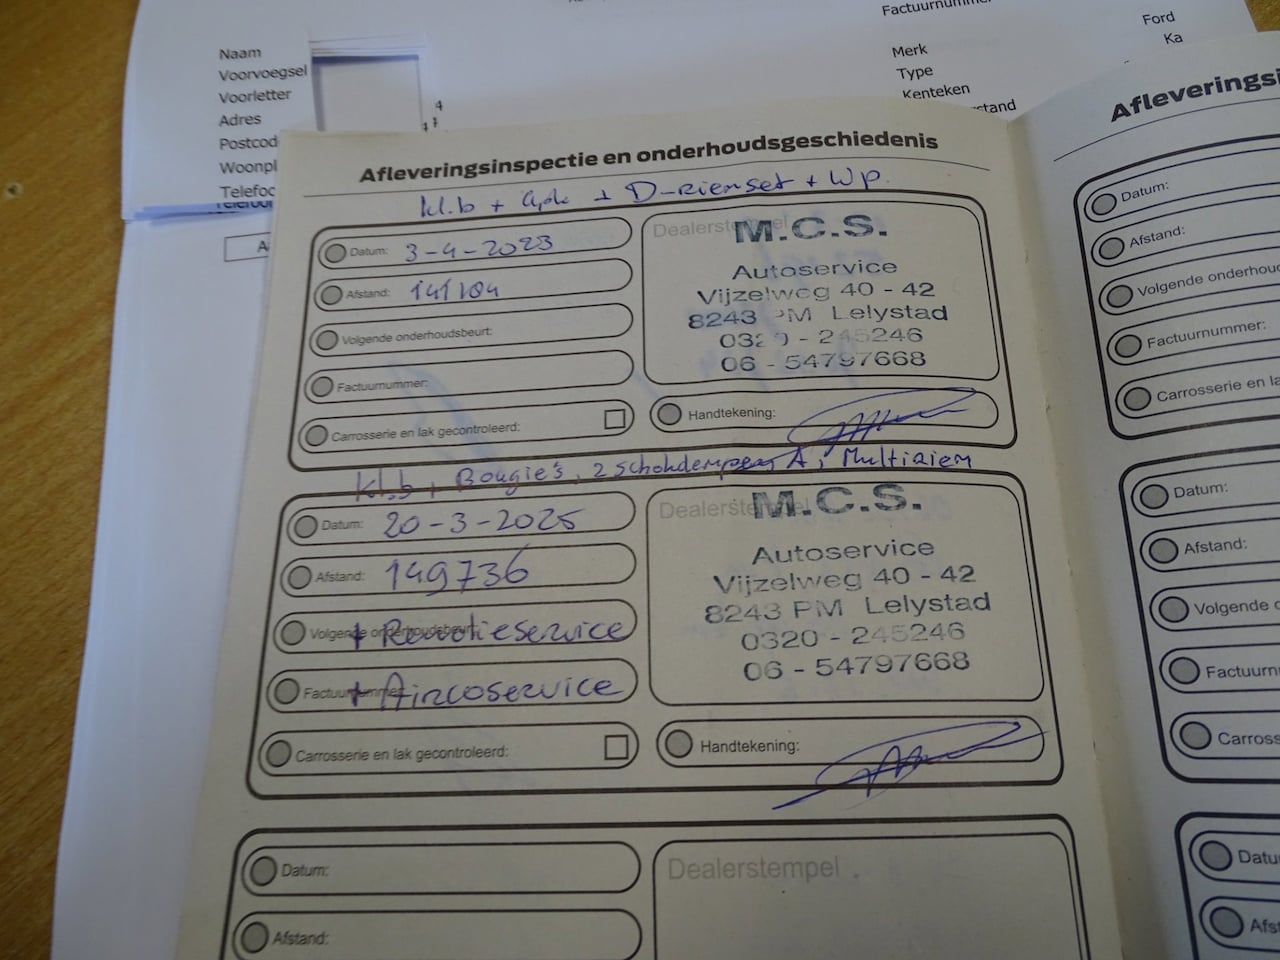 Factuurnummer
Naam
Voorvoegsel
Voorletter
Adres
Postcod
Woonpl
Telefoo
A
4
Ford
Merk
Ka
Type
Kenteken
stand
Afleveringsinspectie en onderhoudsgeschiedenis
kl.b + apk + D-riemset + Wp.
Datum: 3-4-2023
Afstand: 141104
Volgende onderhoudsbeurt:
Factuurnummer:
Carrosserie en lak gecontroleerd:
Dealerstempel
M.C.S.
Autoservice
Vijzelweg 40 - 42
8243 PM Lelystad
- 245246
06 - 54797668
Handtekening:
kl.b, Bougie's, 2 schokdempers A, Multiriem
Datum: 20-3-2025
Afstand: 149736
Volgende onderhoudsbeurt:
+ Remotieservice
Factuurnummer:
+ Aircoservice
Carrosserie en lak gecontroleerd:
Dealerstempel
M.C.S.
Autoservice
Vijzelweg 40 - 42
8243 PM Lelystad
0320 - 245246
06 - 54797668
Handtekening:
Datum:
Afstand:
Dealerstempel
Afleveringsi
Datum:
Afstand:
Volgende onderhou
Factuurnummer:
Carrosserie en la
Datum:
Afstand:
Volgende o
Factuurn
Carross
Datu
Afs